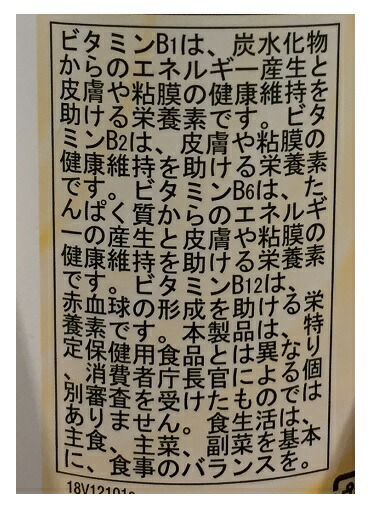 ビタミンB1は、炭水化物
からのエネルギー産生と
皮膚や粘膜の健康維持を
助ける栄養素です。ビタ
ミンB2は、皮膚や粘膜の
健康維持を助ける栄養素
です。ビタミンB6は、た
んぱく質からのエネルギ
ーの産生と皮膚や粘膜の
健康維持を助ける栄養素
です。ビタミンB12は、
赤血球の形成を助ける栄
養素です。本製品は、特
定保健用食品とは異なり
、消費者庁長官による個
別審査を受けたものでは
ありません。食生活は、
主食、主菜、副菜を基本
に、食事のバランスを。
18V12101